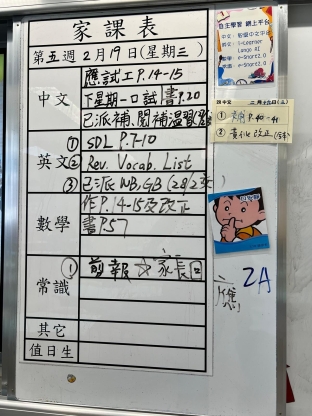 家課表
第五週2月19日(星期三)
中文
應試工P.14-15
下星期一口試 書P.20
已派補.閱補温習
英文
① SDL P.7-10
② Rev. Vocab. List
③ 已派WB,GB (28/2交)
數學
作P.14-15及改正
書P.57
常識
① 剪報 ☆家長回
其它
值日生
自主學習 網上平台
中文:
i-Learner
英文:
數學: e-Smart2.0
常識: e-Smart2.0
① P.40-41
②
2A